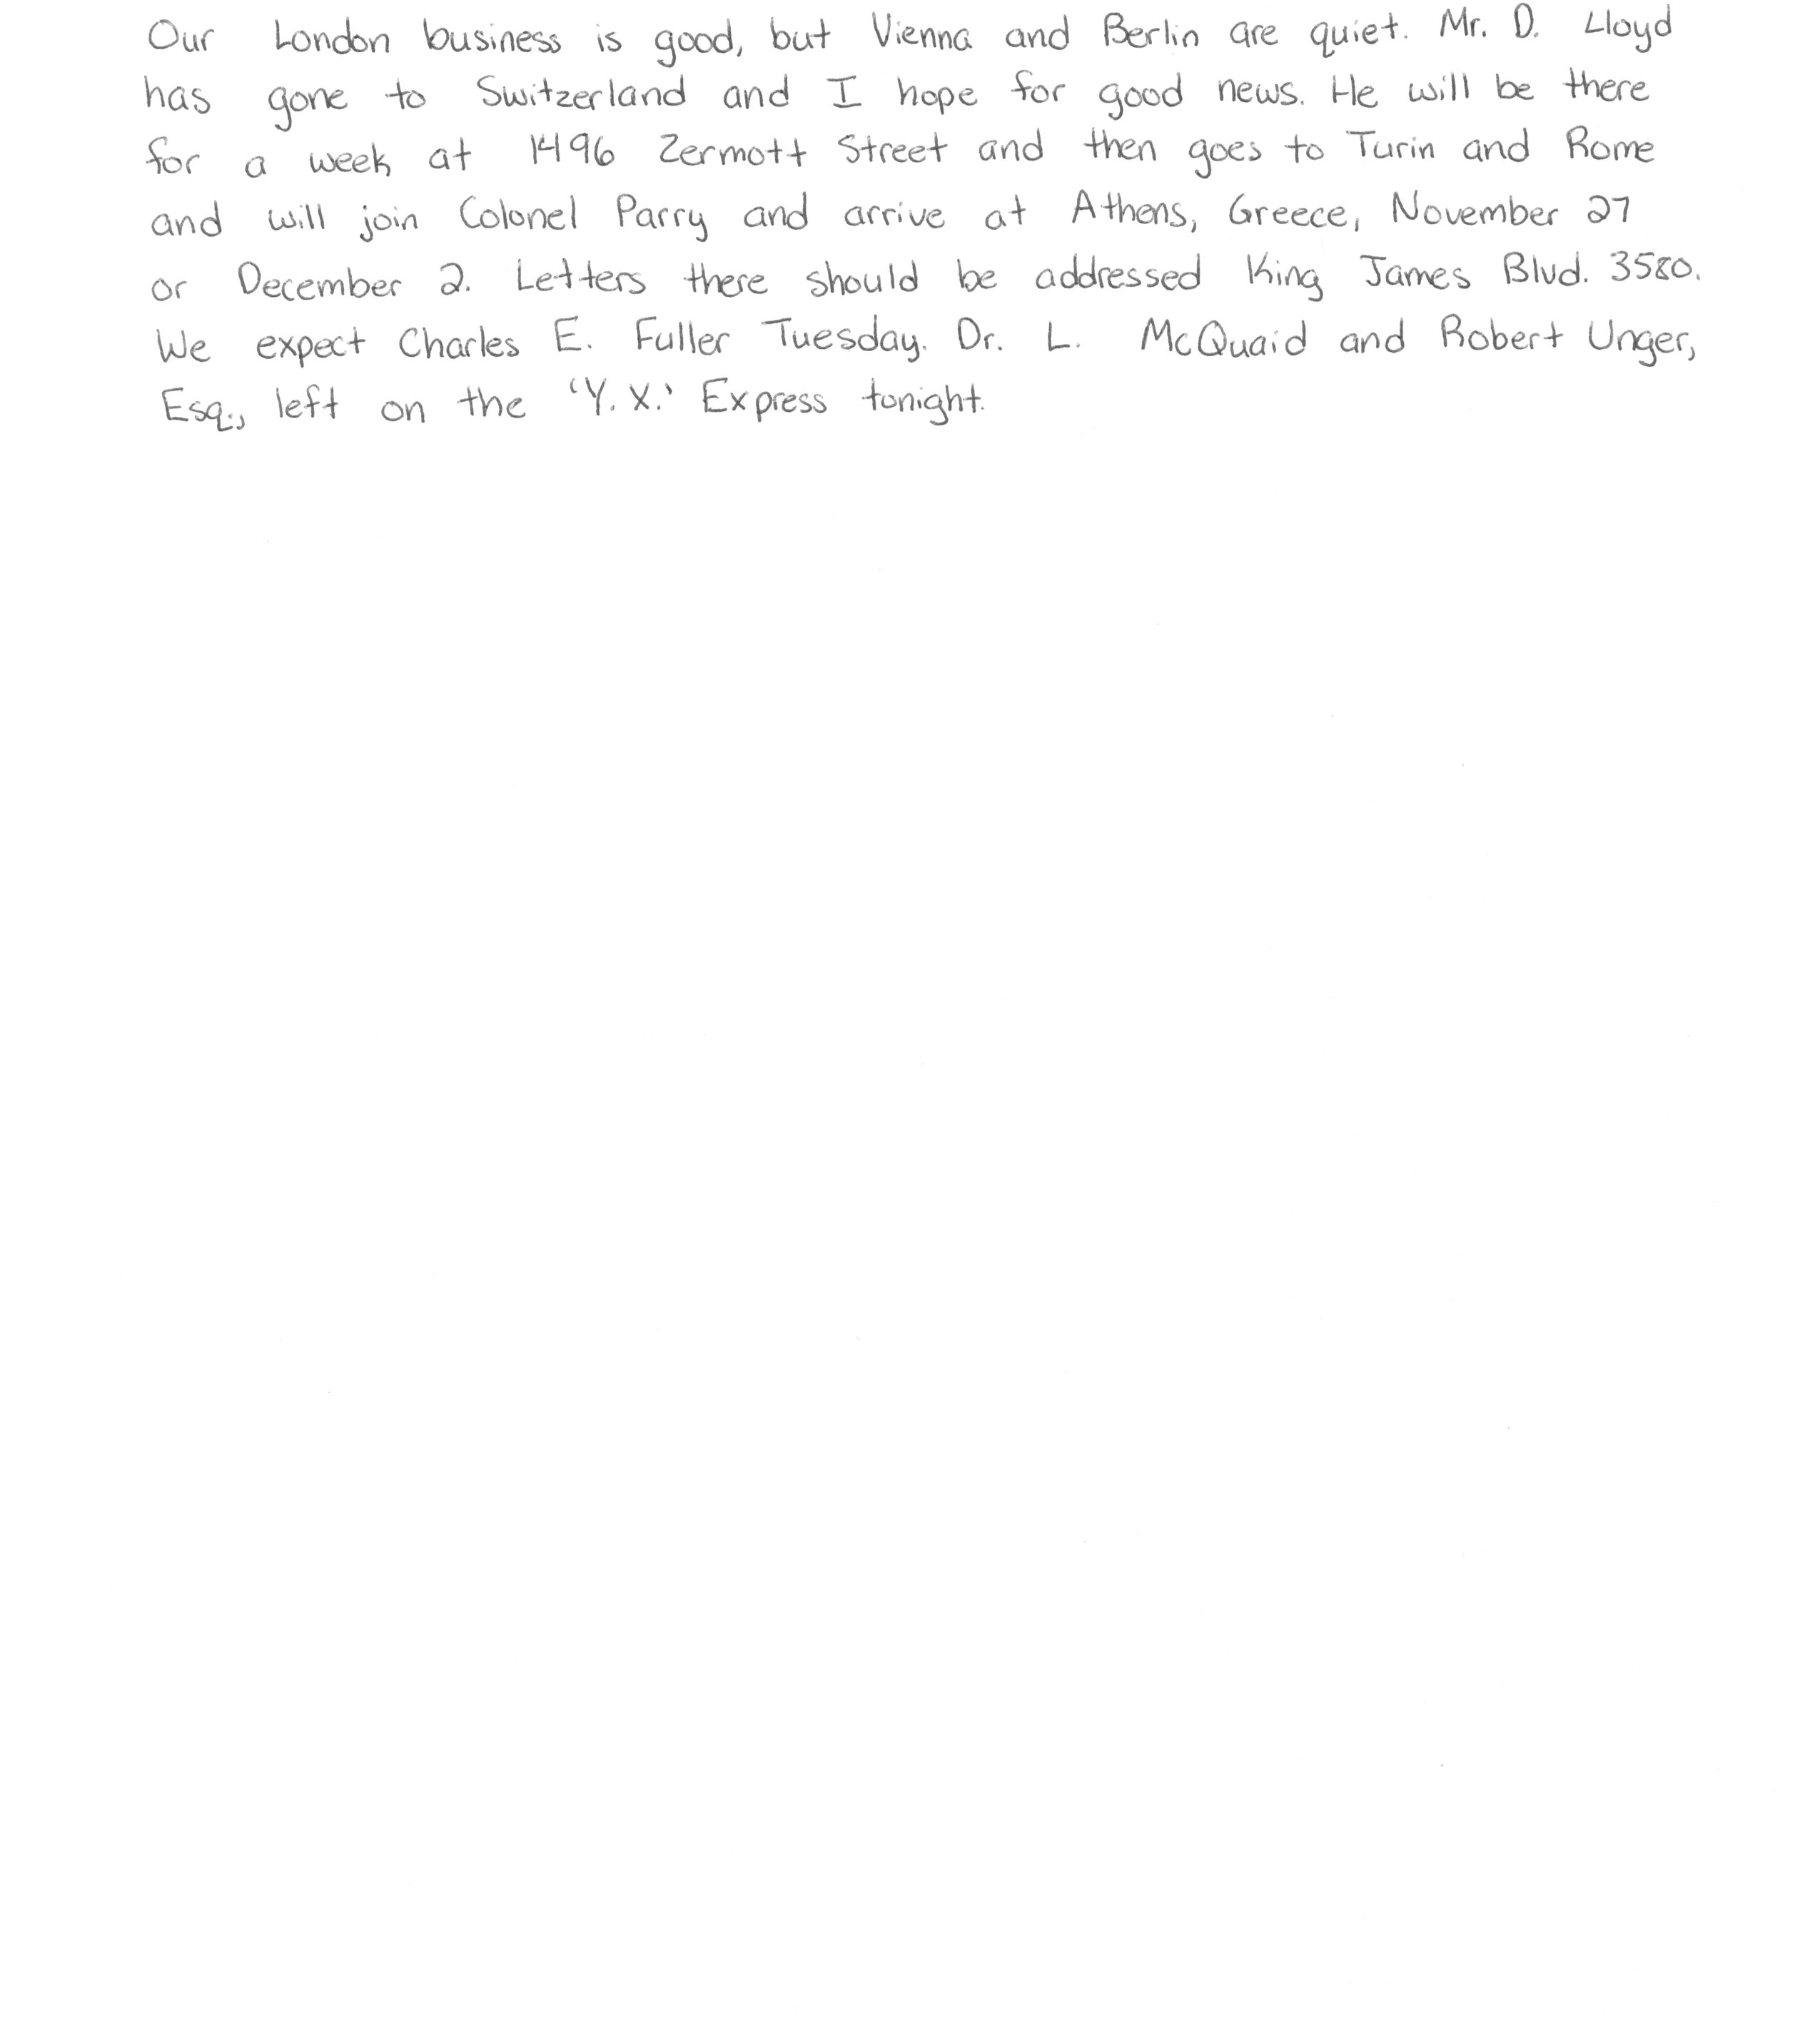 Our London business is good, but Vienna and Berlin are quiet. Mr. D. Lloyd
has gone to Switzerland and I hope for good news. He will be there
for a week at 1496 Zermott Street and then goes to Turin and Rome
and will join Colonel Parry and arrive at Athens, Greece, November 27
or December 2. Letters there should be addressed King James Blvd. 3580.
We expect Charles E. Fuller Tuesday. Dr. L. McQuaid and Robert Unger,
Esq., left on the 'Y. X.' Express tonight.